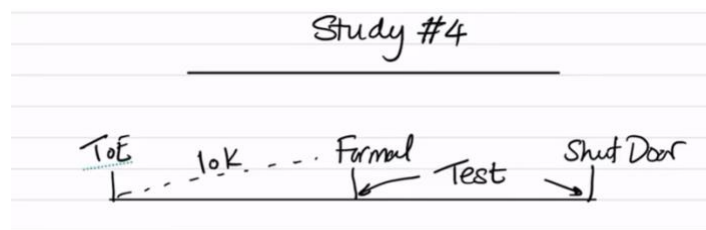 Study #4
ToE 10K Formal Test Shut Door